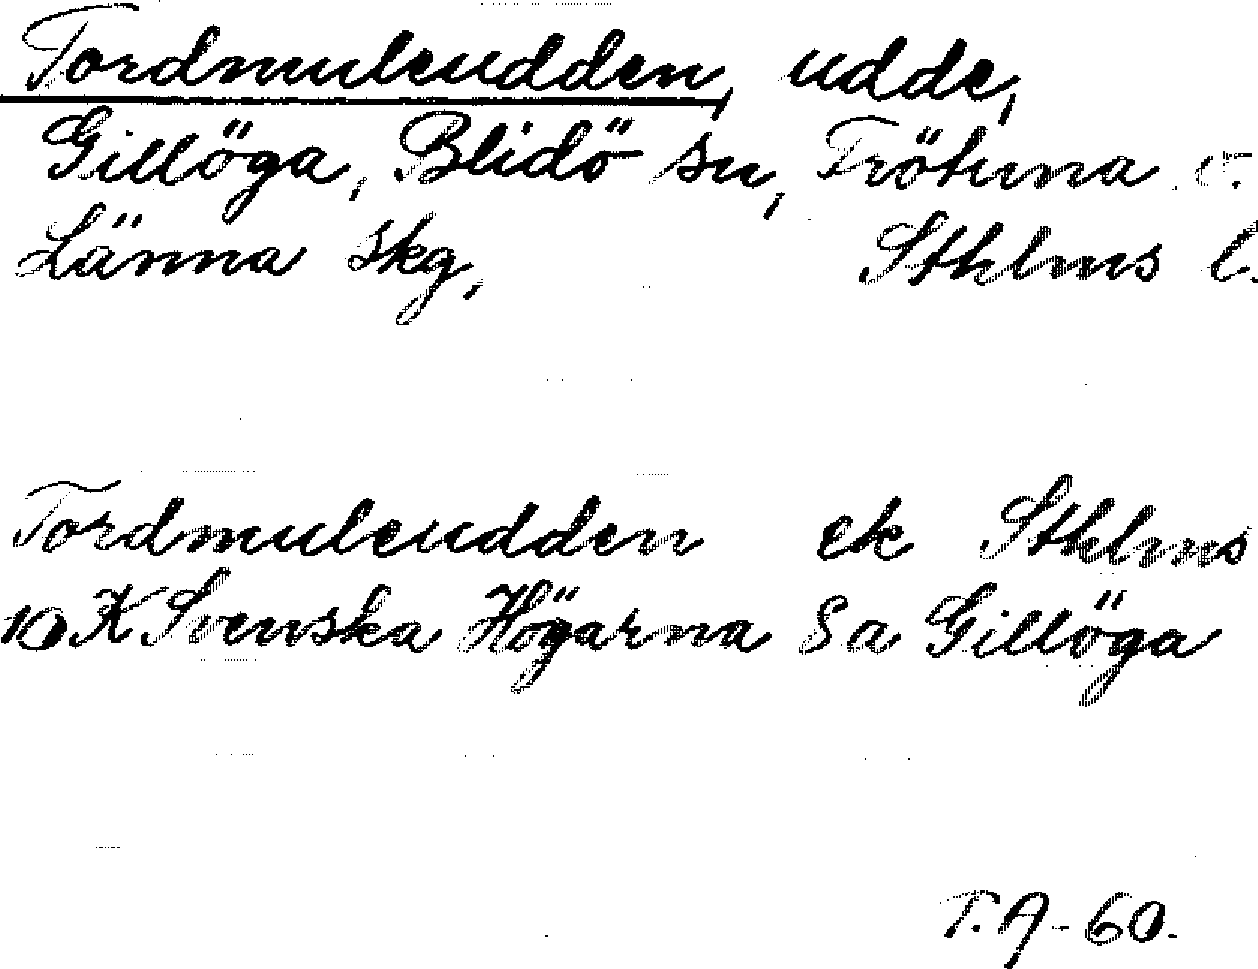 Tordmuleudden, udde,
Gillöga, Blidö sn, Frötuna o.
Länna skg, Sthlms l.
Tordmuleudden ek Sthlms
10 K Svenska Högarna Sa Gillöga
T. A-60.